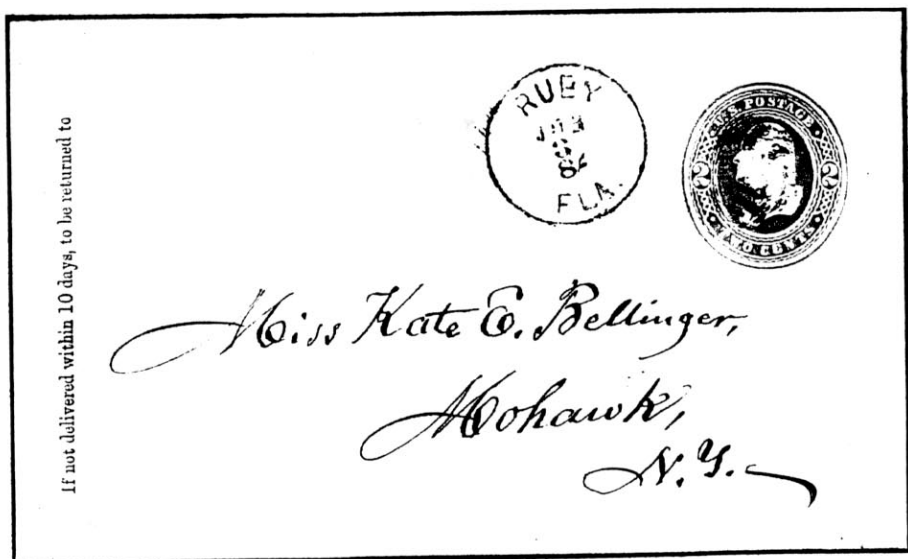 If not delivered within 10 days, to be returned to
RUBY
FLA.
U.S. POSTAGE
2 2
TWO CENTS
Miss Kate E. Bellinger,
Mohawk,
N.Y.